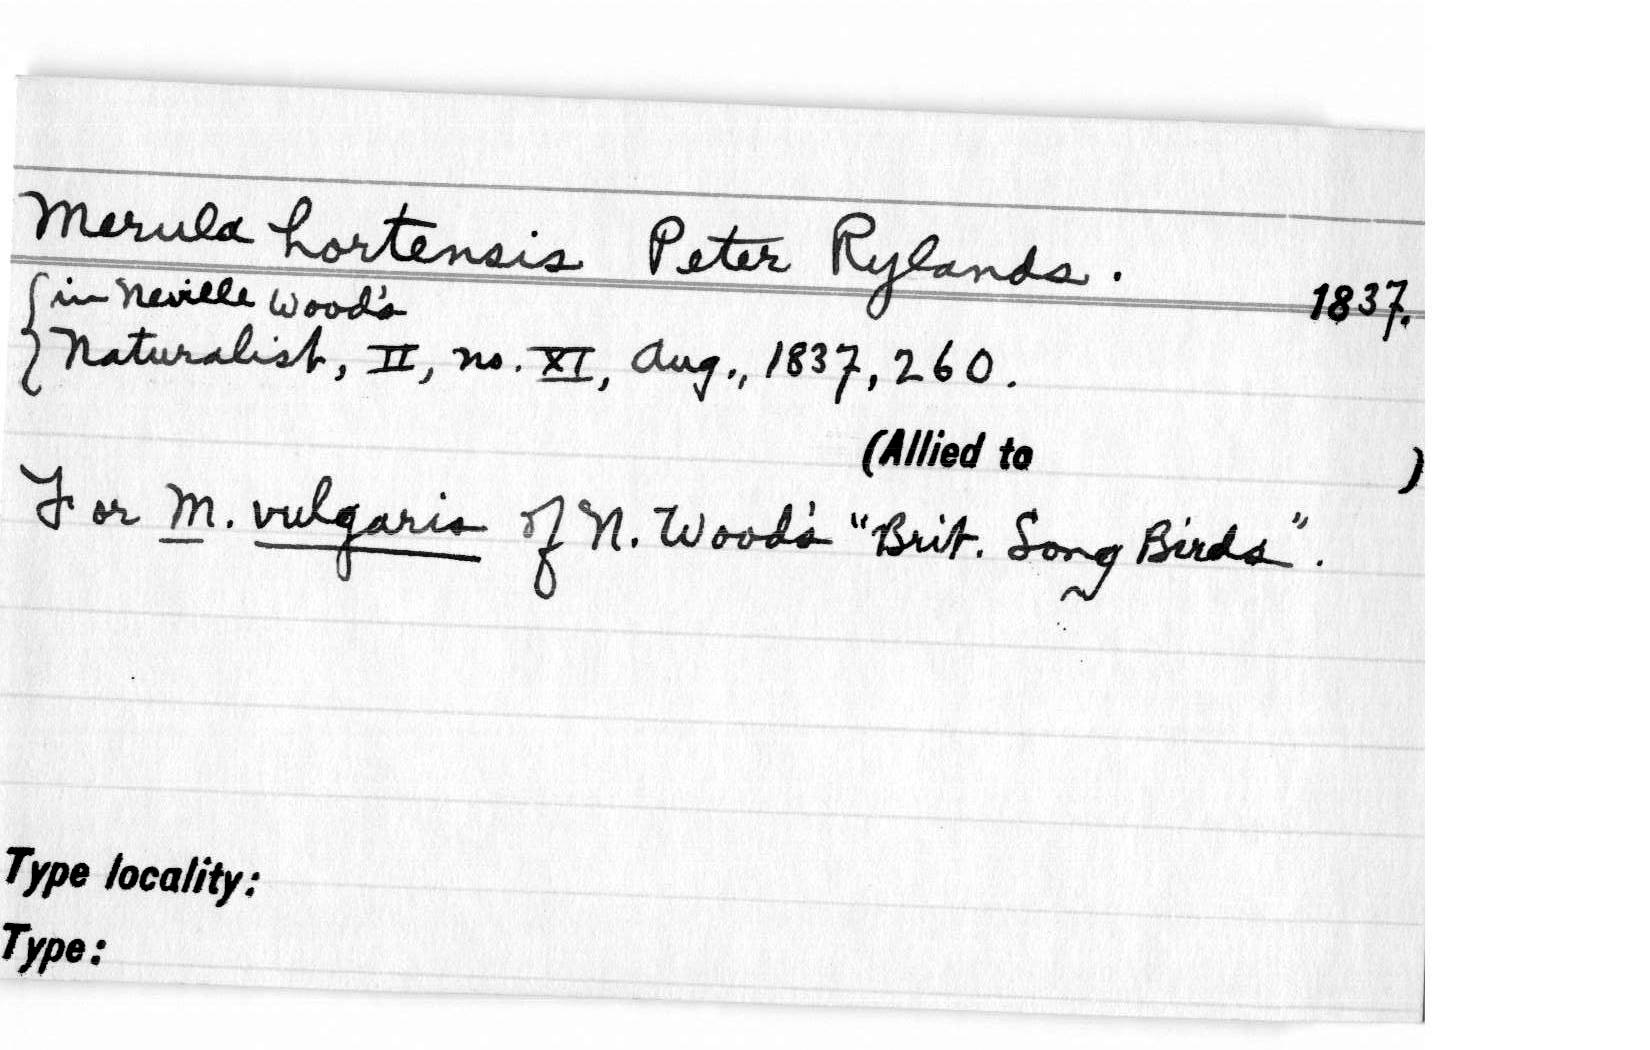 Merula hortensis Peter Rylands.
1837.
{ in Neville Wood's
Naturalist, II, no. XI, Aug., 1837, 260.
(Allied to )
For M. vulgaris of N. Wood's "Brit. Song Birds".
Type locality:
Type: